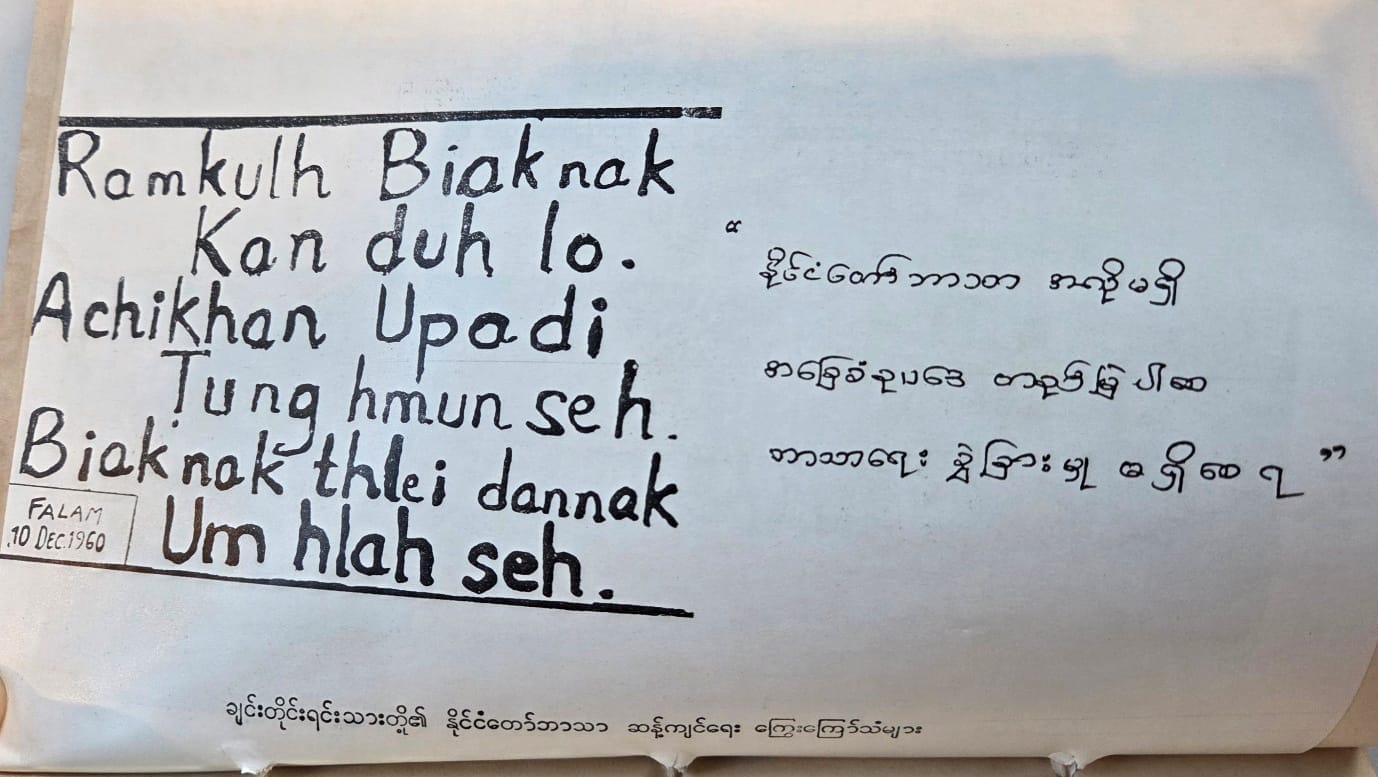 Ramkulh Biaknak
Kan duh lo.
Achikhan Upadi
Tung hmun seh.
Biaknak thlei dannak
Um hlah seh.
FALAM
10 DEC.1960
“ နိုင်ငံတော်ဘာသာ အလိုမရှိ
အခြေခံဥပဒေ တည်မြဲပါစေ
ဘာသာရေး ခွဲခြားမှု မရှိစေရ ”
ချင်းတိုင်းရင်းသားတို့၏ နိုင်ငံတော်ဘာသာ ဆန့်ကျင်ရေး ကြွေးကြော်သံများ